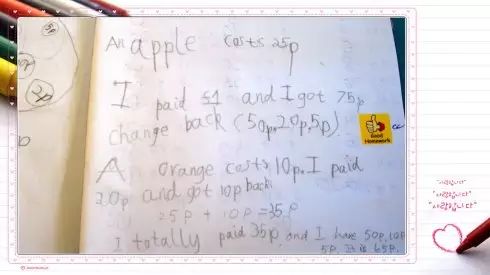 An apple costs 25p
I paid £1 and I got 75p
change back (50p,20p,5p)
Good
Homework
A orange costs 10p. I paid
20p and got 10p back
25p + 10p = 35p
I totally paid 35p, and I have 50p, 10p
5p. It is 65p.
2p
"사랑합니다"
"사랑합니다"
"사랑합니다"